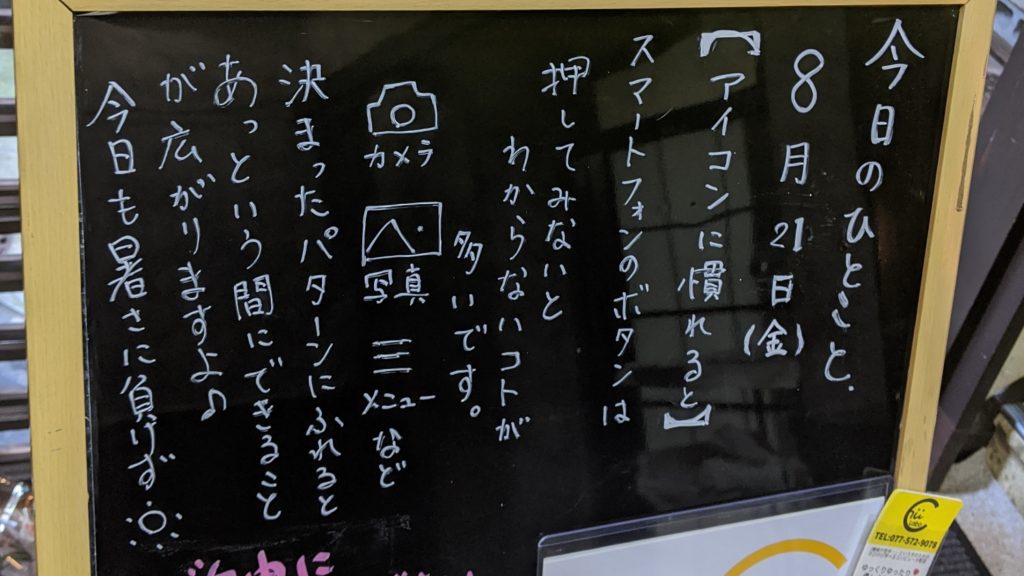 今日のひとこと.
8月21日(金)
【アイコンに慣れると】
スマートフォンのボタンは
押してみないと
わからないコトが
多いです。
カメラ
写真
メニュー など
決まったパターンにふれると
あっという間にできること
が広がりますよ♪
今日も暑さに負けず
TEL:077-572-9076
ゆっくりゆったり